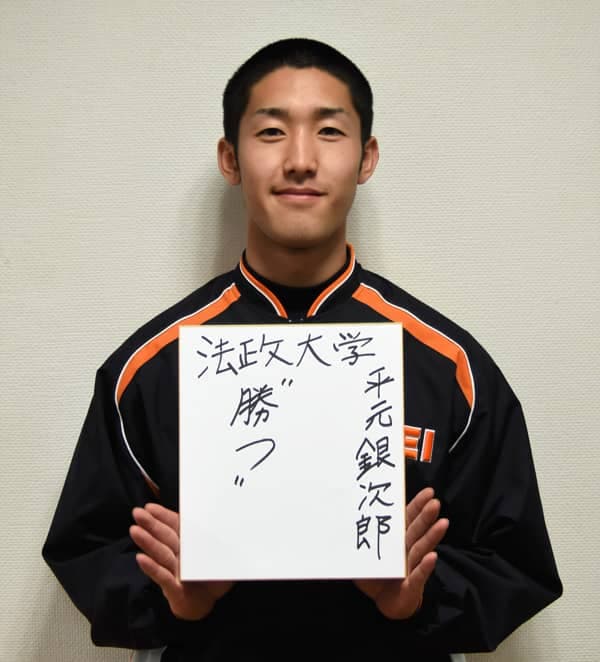 法政大学
平元銀次郎
"勝つ"
EI